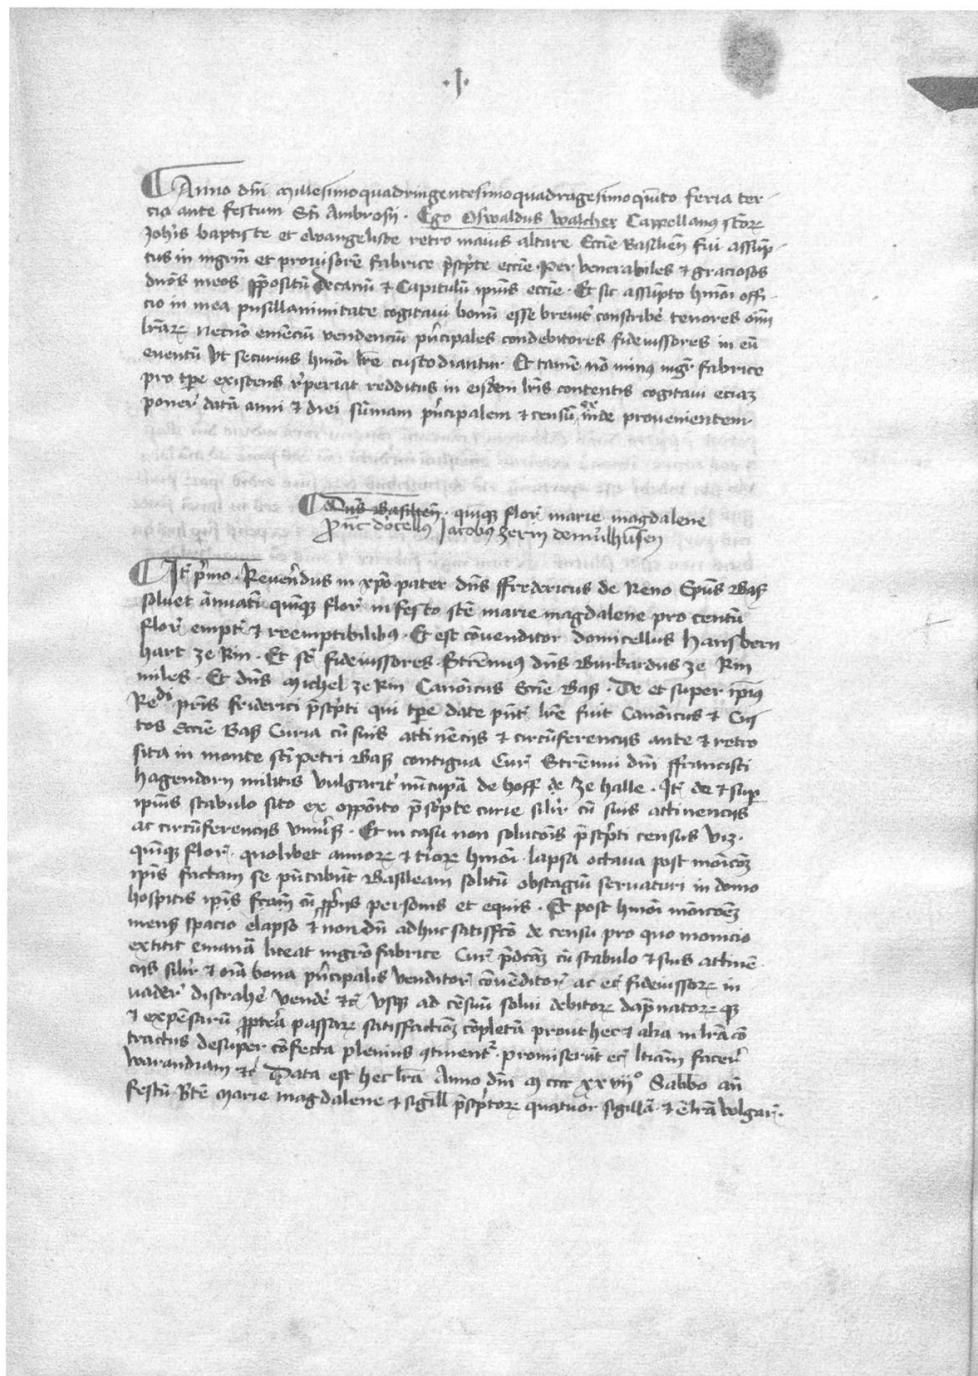 ·J·
Anno dni Millesimoquadringentesimoquadragesimoquito feria ter-
cia ante festum Sti Ambrosij · Ego Oswaldus walcher Cappellanus stor
Johis baptiste et ewangeliste retro maius altare Eccie Basilien fui assup-
tus in mgrm et prouisore fabrice pscpte eccie Per venerabiles & graciosos
dnos meos ppositu Decanu & Capitulu ipius eccie · Et sic assupto hmoi offi
cio in mea pusillanimitate cogitaui bonu esse breuit conscribe tenores oim
lrar necno emenciu vendenciu pncipales condebitores fideiussores in eu
euentu vt securius hmoi lre custodiantur Et tame no minus mgr fabrice
pro tpe existens rperiat redditus in eisdem lris contentis cogitaui eciaz
poner data anni & diei sumam pncipalem & censu inde prouenientem
Dns Basilien · quiqz flor marie magdalene
Nuc docellus Jacobus zerin de mulhusen
It pmo · Reuendus in xpo pater dns ffredericus de Reno Epus Bas
soluet annuati quiqz flor in festo ste marie magdalene pro centu
flor empt & reemptibilibus · Et est couenditor domicellus Hans bern
hart ze Rin · Et st fideiussores · Strenuus dns Burkardus ze Rin
miles · Et dns Michel ze Rin Canoicus Eccie Bas · De et super ipius
Redi pris friderici pscpti qui tpe date pnt lre fuit Canoicus & Cus
tos Eccie Bas Curia cu suis attinecijs & circuferencijs ante & retro
sita in monte sti petri Bas contigua Cur Strenui dni ffrancisci
hagendorn militis vulgarit nucupa de hoff ze halle · It de & sup
ipius stabulo sito ex opposito pscpte curie silir cu suis attinencijs
ac circuferencijs vniuss · Et in casu non solucois pscpti census viz ·
quiqz flor · quolibet annor & tior hmoi · lapsa octaua post moicoez
ipis factam se pntabut Basileam solitu obstagiu seruaturi in domo
hospitis ipis fcam cu pprijs personis et equis · Et post hmoi moicoez
mens spacio elapso & nondu adhuc satisfco de censu pro quo monicio
extitit emana liceat mgro fabrice Cur pdcaz cu stabulo & suis attine
cijs silir & oia bona pncipalis venditor couenditor ac ec fideiussor in
uader distrahe vende &c vsqz ad cesuu solui debitor dapnator qz
& expesaru ppterea passar satisfactioz copleta prout hec & alia in lra co
tractus desuper cofecta plenius qtinent · promiserut ec lticam facer
warandiam &c Data est hec lra Anno dni M cccc xxviijo Sabbo an
festu Bte Marie magdalene & sigill pscptor quatuor sigilla · & e lra vulgar ·